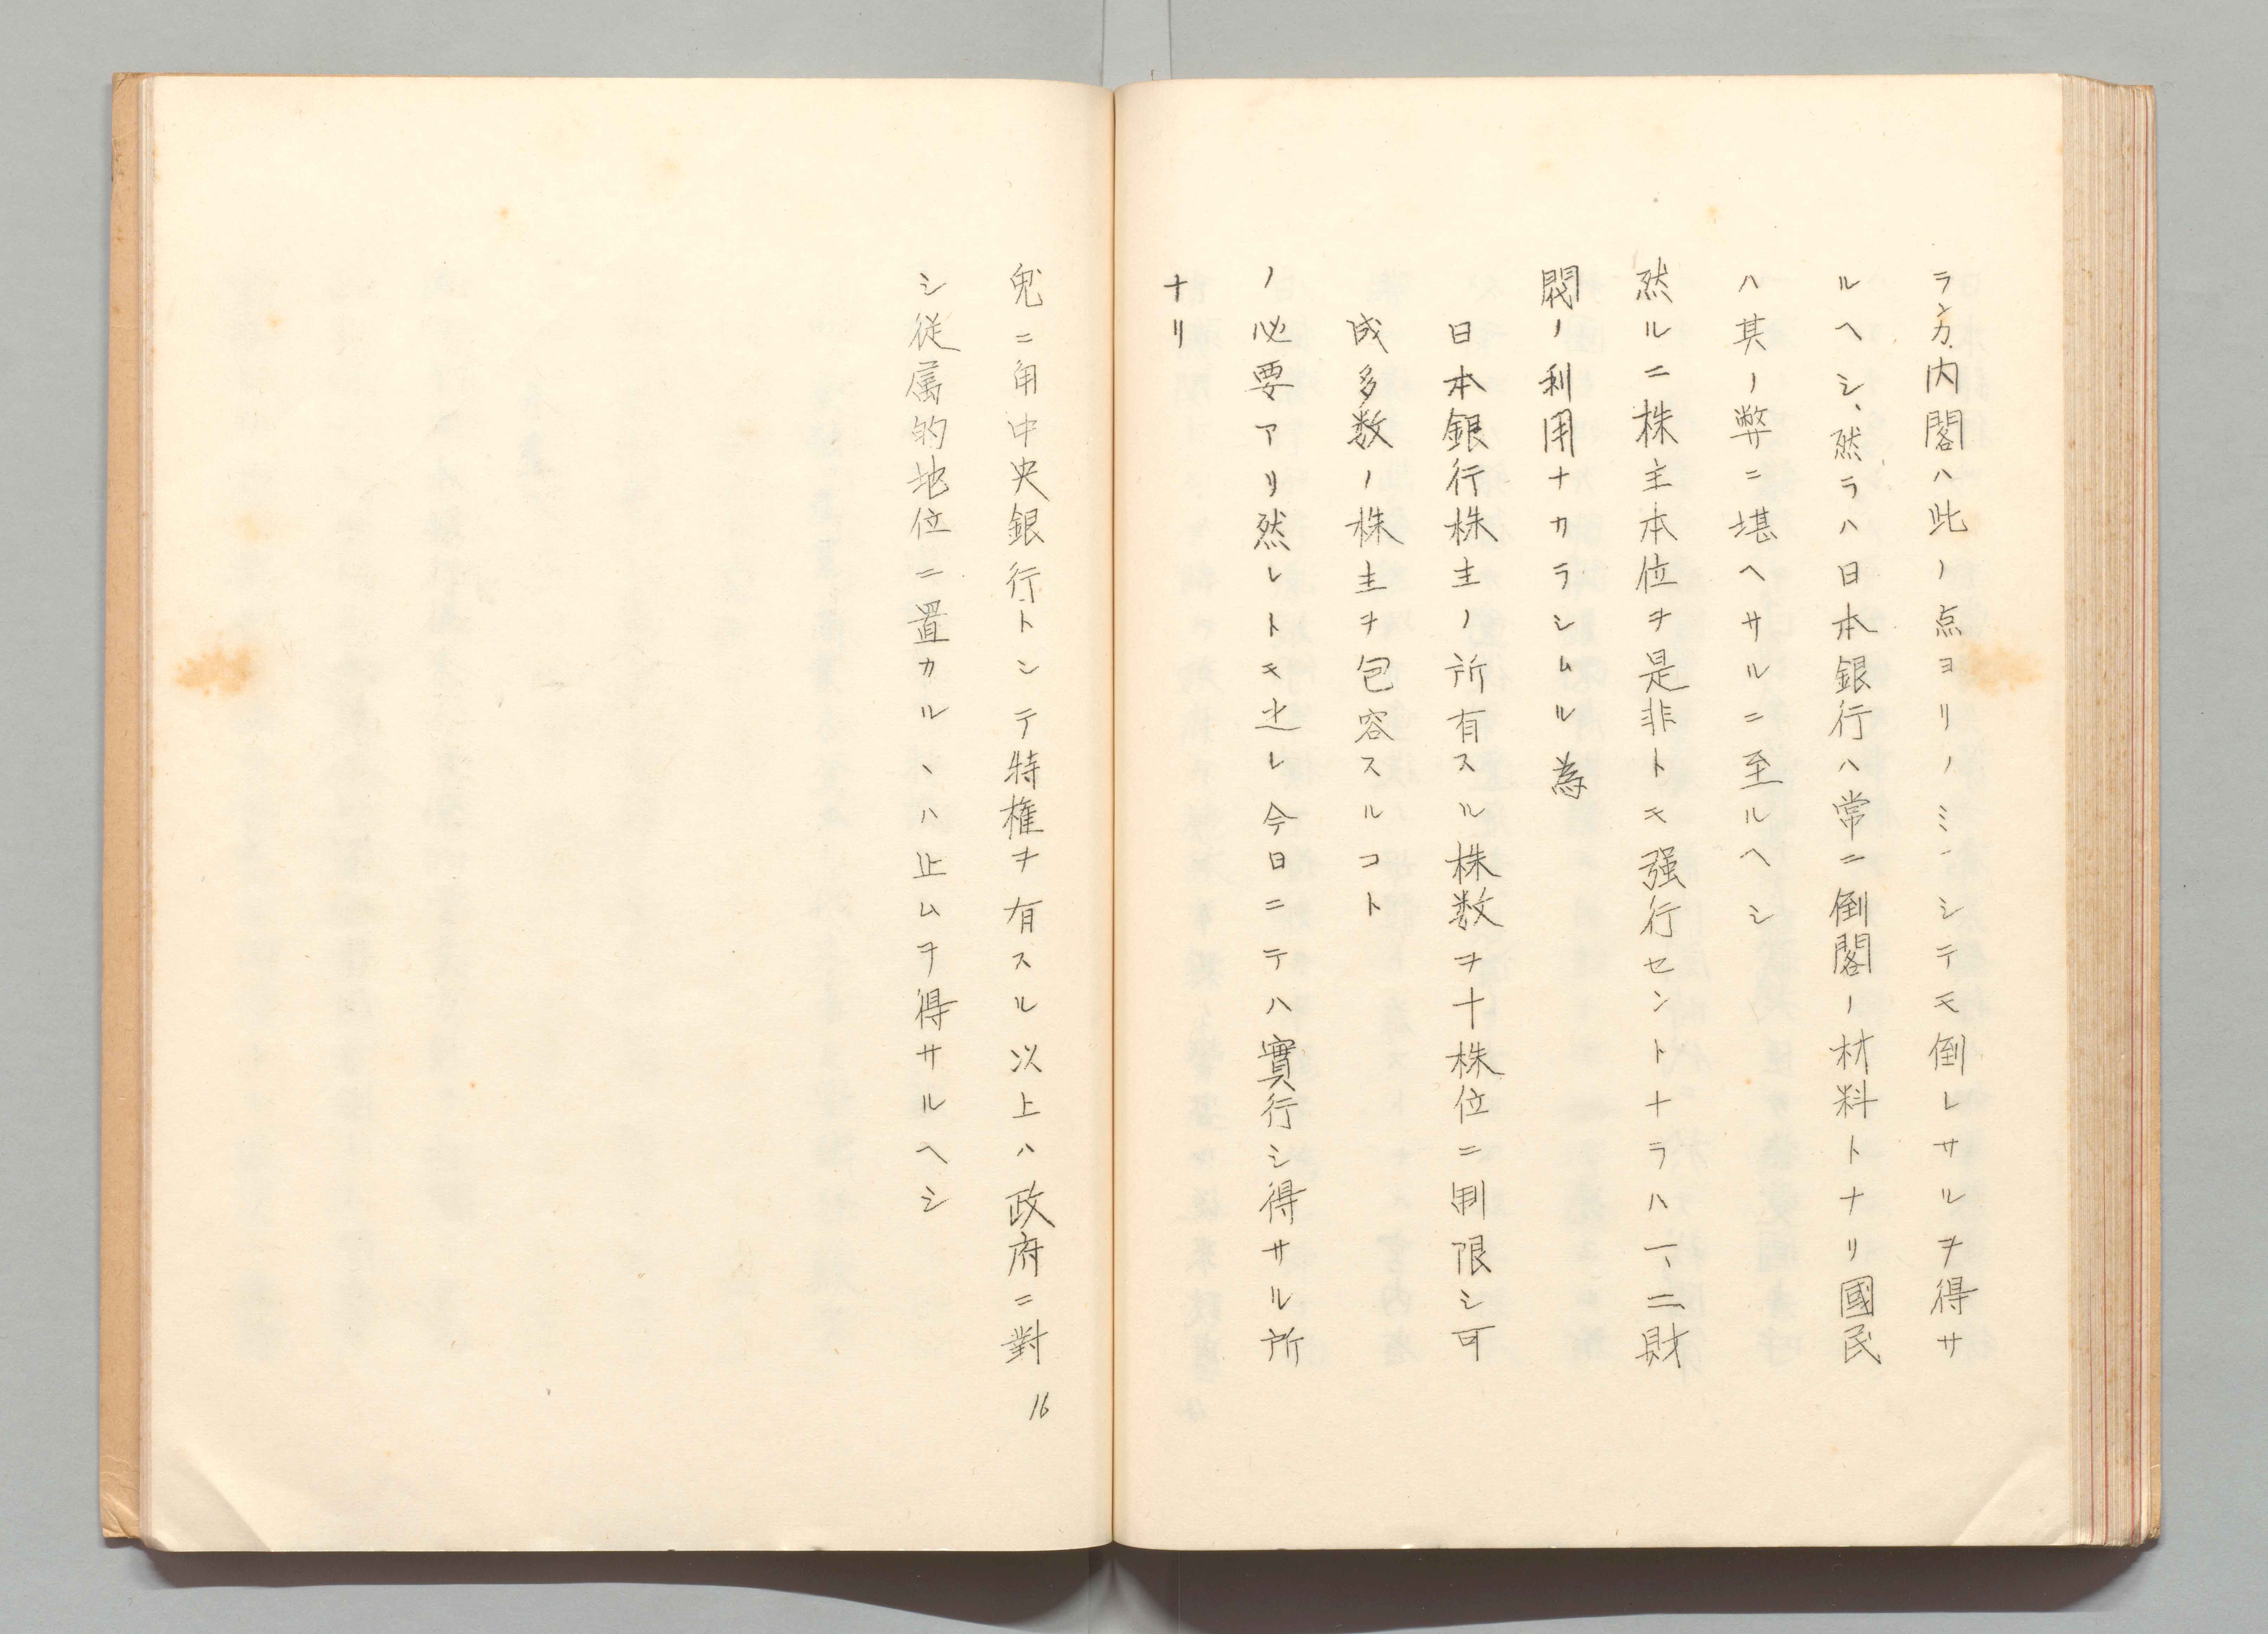 ランカ、内閣ハ此ノ点ヨリノミニシテモ倒レサルヲ得サ
ルヘシ、然ラハ日本銀行ハ常ニ倒閣ノ材料トナリ國民
ハ其ノ弊ニ堪ヘサルニ至ルヘシ
然ルニ株主本位ヲ是非トモ强行セントナラハ一、二財
閥ノ利用ナカラシムル為
日本銀行株主ノ所有スル株数ヲ十株位ニ制限シ可
成多数ノ株主ヲ包容スルコト
ノ必要アリ然レトモ之レ今日ニテハ實行シ得サル所
ナリ
兎ニ角中央銀行トシテ特権ヲ有スル以上ハ政府ニ對
シ従属的地位ニ置カルヽハ止ムヲ得サルヘシ
16